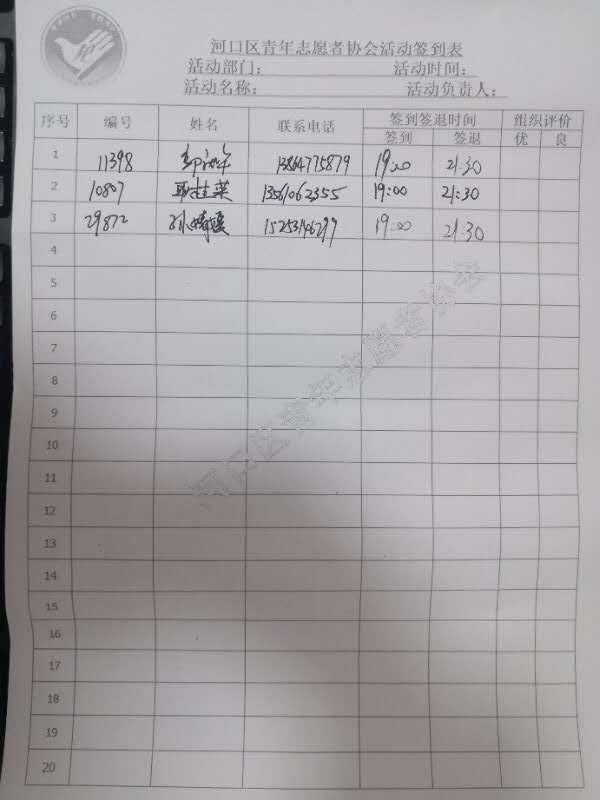 河口区青年志愿者协会活动签到表
活动部门： 活动时间：
活动名称： 活动负责人：
序号 编号 姓名 联系电话 签到签退时间 组织评价
签到 签退 优 良
1 11398 13864775879 19:00 21:30
2 10807 耿桂英 13561062355 19:00 21:30
3 29872 15253146297 19:00 21:30
4
5
6
7
8
9
10
11
12
13
14
15
16
17
18
19
20
河口区青年志愿者协会